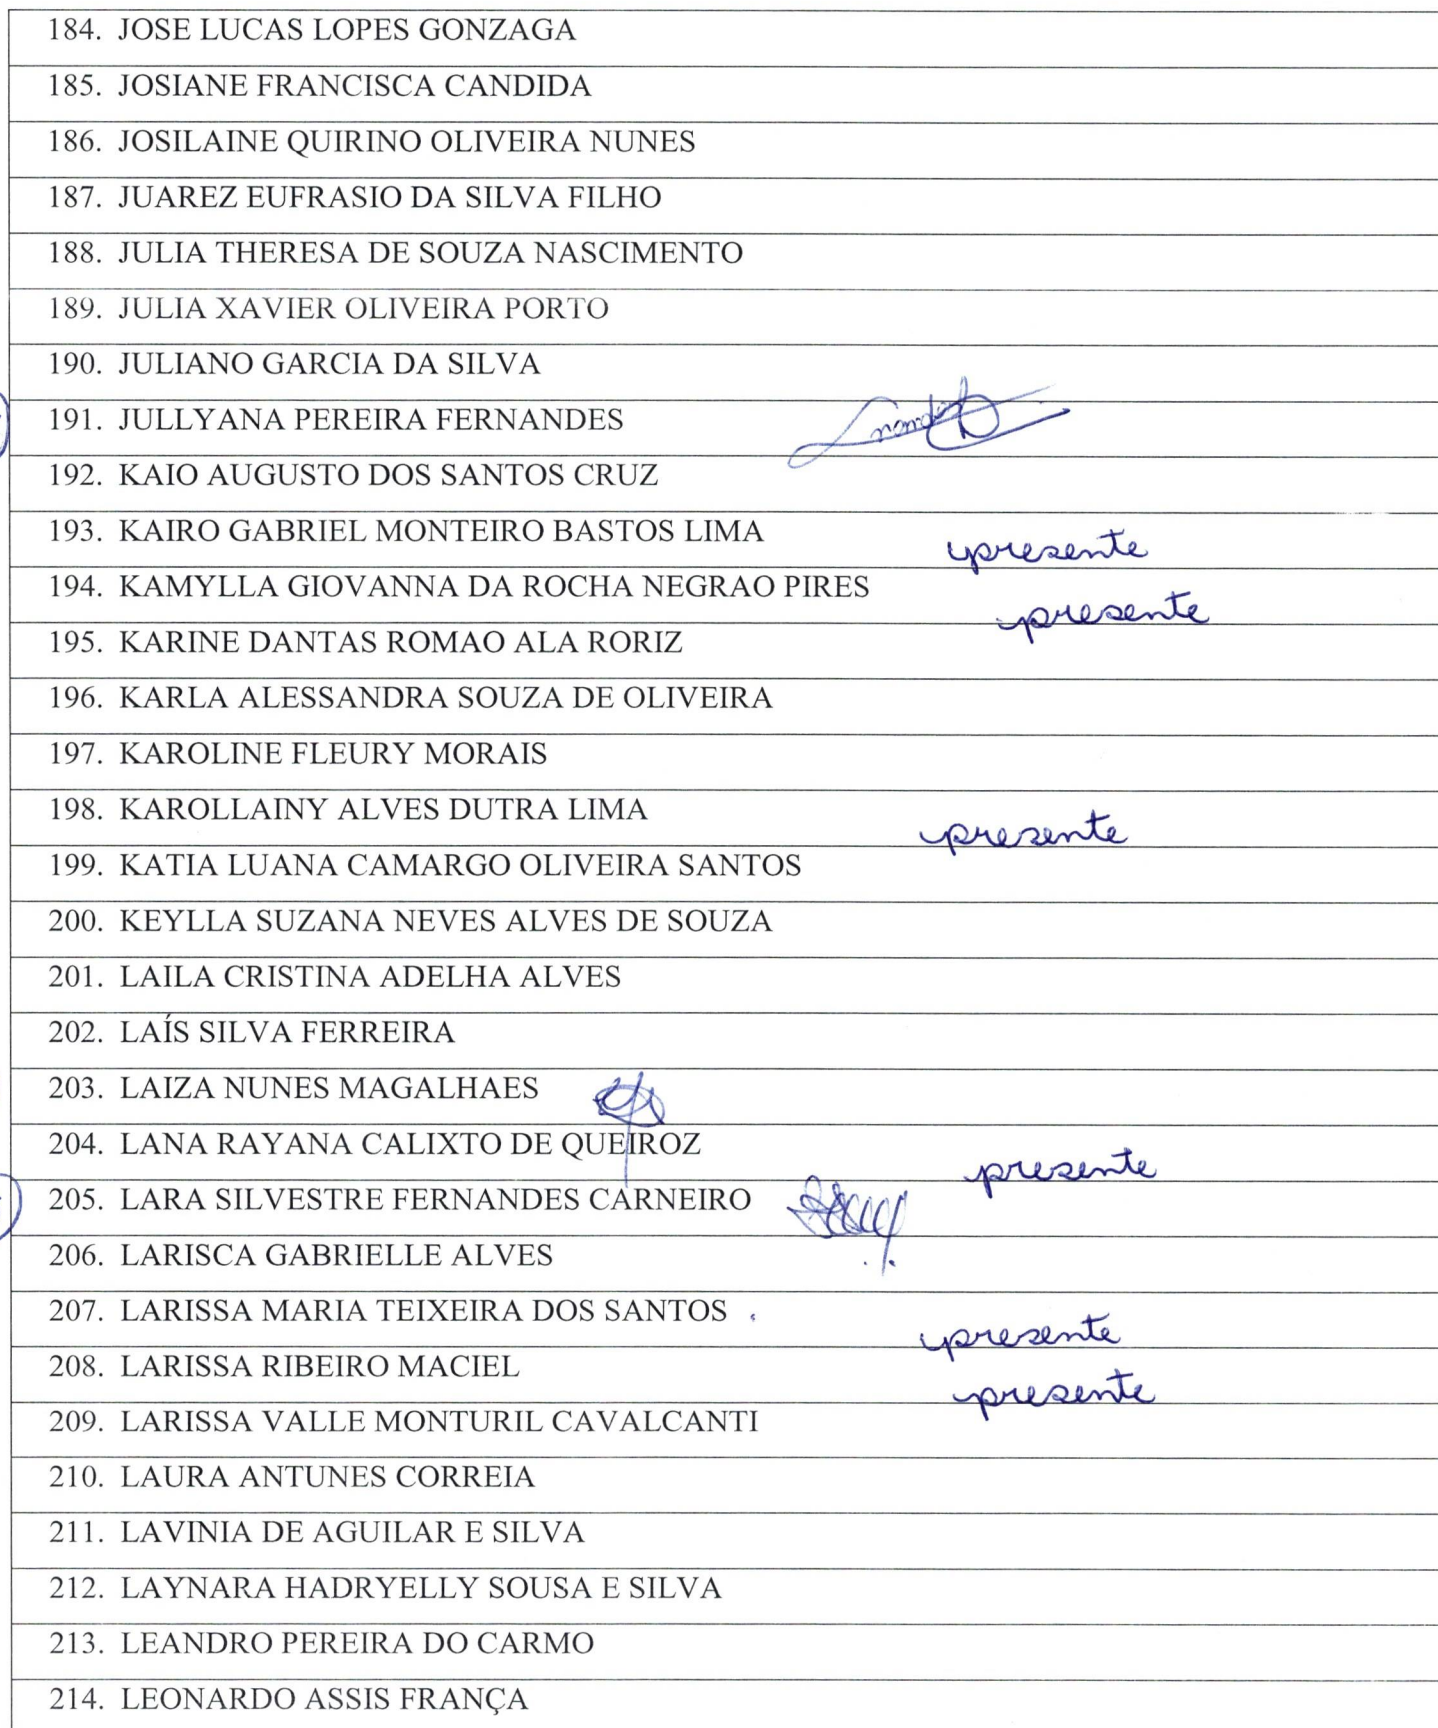 184. JOSE LUCAS LOPES GONZAGA
185. JOSIANE FRANCISCA CANDIDA
186. JOSILAINE QUIRINO OLIVEIRA NUNES
187. JUAREZ EUFRASIO DA SILVA FILHO
188. JULIA THERESA DE SOUZA NASCIMENTO
189. JULIA XAVIER OLIVEIRA PORTO
190. JULIANO GARCIA DA SILVA
191. JULLYANA PEREIRA FERNANDES
192. KAIO AUGUSTO DOS SANTOS CRUZ
193. KAIRO GABRIEL MONTEIRO BASTOS LIMA presente
194. KAMYLLA GIOVANNA DA ROCHA NEGRAO PIRES presente
195. KARINE DANTAS ROMAO ALA RORIZ
196. KARLA ALESSANDRA SOUZA DE OLIVEIRA
197. KAROLINE FLEURY MORAIS
198. KAROLLAINY ALVES DUTRA LIMA presente
199. KATIA LUANA CAMARGO OLIVEIRA SANTOS
200. KEYLLA SUZANA NEVES ALVES DE SOUZA
201. LAILA CRISTINA ADELHA ALVES
202. LAÍS SILVA FERREIRA
203. LAIZA NUNES MAGALHAES
204. LANA RAYANA CALIXTO DE QUEIROZ presente
205. LARA SILVESTRE FERNANDES CARNEIRO
206. LARISCA GABRIELLE ALVES
207. LARISSA MARIA TEIXEIRA DOS SANTOS presente
208. LARISSA RIBEIRO MACIEL presente
209. LARISSA VALLE MONTURIL CAVALCANTI
210. LAURA ANTUNES CORREIA
211. LAVINIA DE AGUILAR E SILVA
212. LAYNARA HADRYELLY SOUSA E SILVA
213. LEANDRO PEREIRA DO CARMO
214. LEONARDO ASSIS FRANÇA